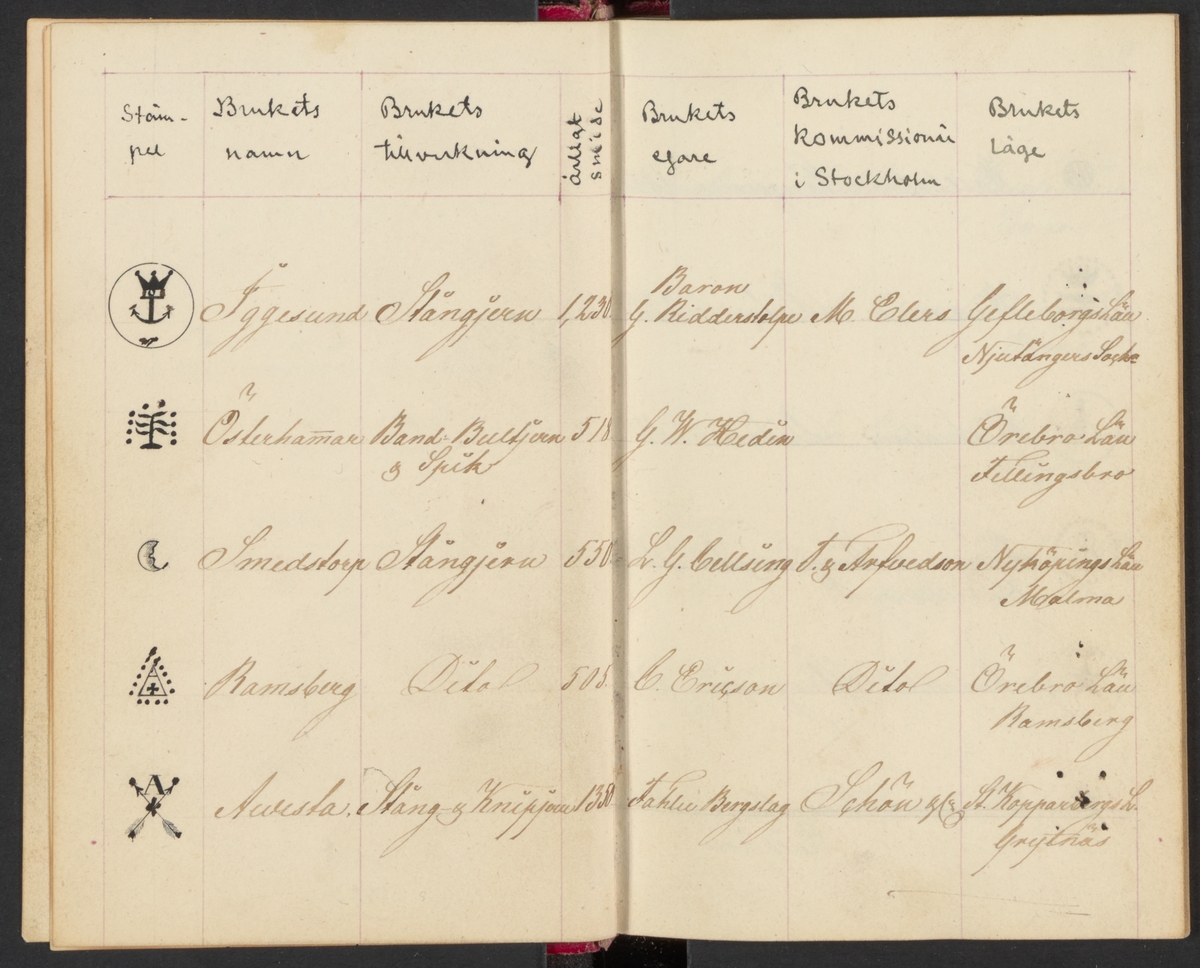 Stäm-
pel
Brukets
namn
Brukets
tillverkning
årligt
smide
Brukets
egare
Brukets
kommissionär
i Stockholm
Brukets
läge
Iggesund Stångjern 1,230. Baron
G. Ridderstolpe M. Elers Gefleborgs Län
Njutångers Sockn
Österhammar Band- Bultjern 518 G. W. Hedin Örebro Län
& Spik Fellingsbro
Smedstorp Stångjern 550 L. G. Cellsing T. & Arfvedson Nyköpings Län
Malma
Ramsberg Dito 505. C. Ericson Dito Örebro Län
Ramsberg
A
Avesta. Stång & Knipjern 1350 Fahlu Bergslag Schön & C. St. Kopparbergs L.
Grytnäs